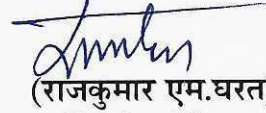 (राजकुमार एम.घरत